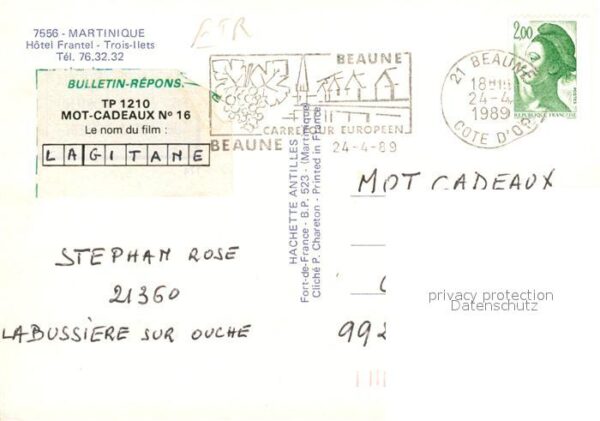 7556 - MARTINIQUE
Hôtel Frantel - Trois-Ilets
Tél. 76.32.32
BULLETIN-RÉPONS
TP 1210
MOT-CADEAUX Nº 16
Le nom du film :
LAGITANE
BEAUNE
CARREFOUR EUROPEEN
BEAUNE 24-4-89
21 BEAUNE
24-4
1989
COTE D'OR
2,00
REPUBLIQUE FRANÇAISE
HACHETTE ANTILLES
Fort-de-France - B.P. 523 - (Martinique)
Cliché P. Chareton - Printed in France
MOT CADEAUX
STEPHAN ROSE
21360
LABUSSIÈRE SUR OUCHE
992
privacy protection
Datenschutz